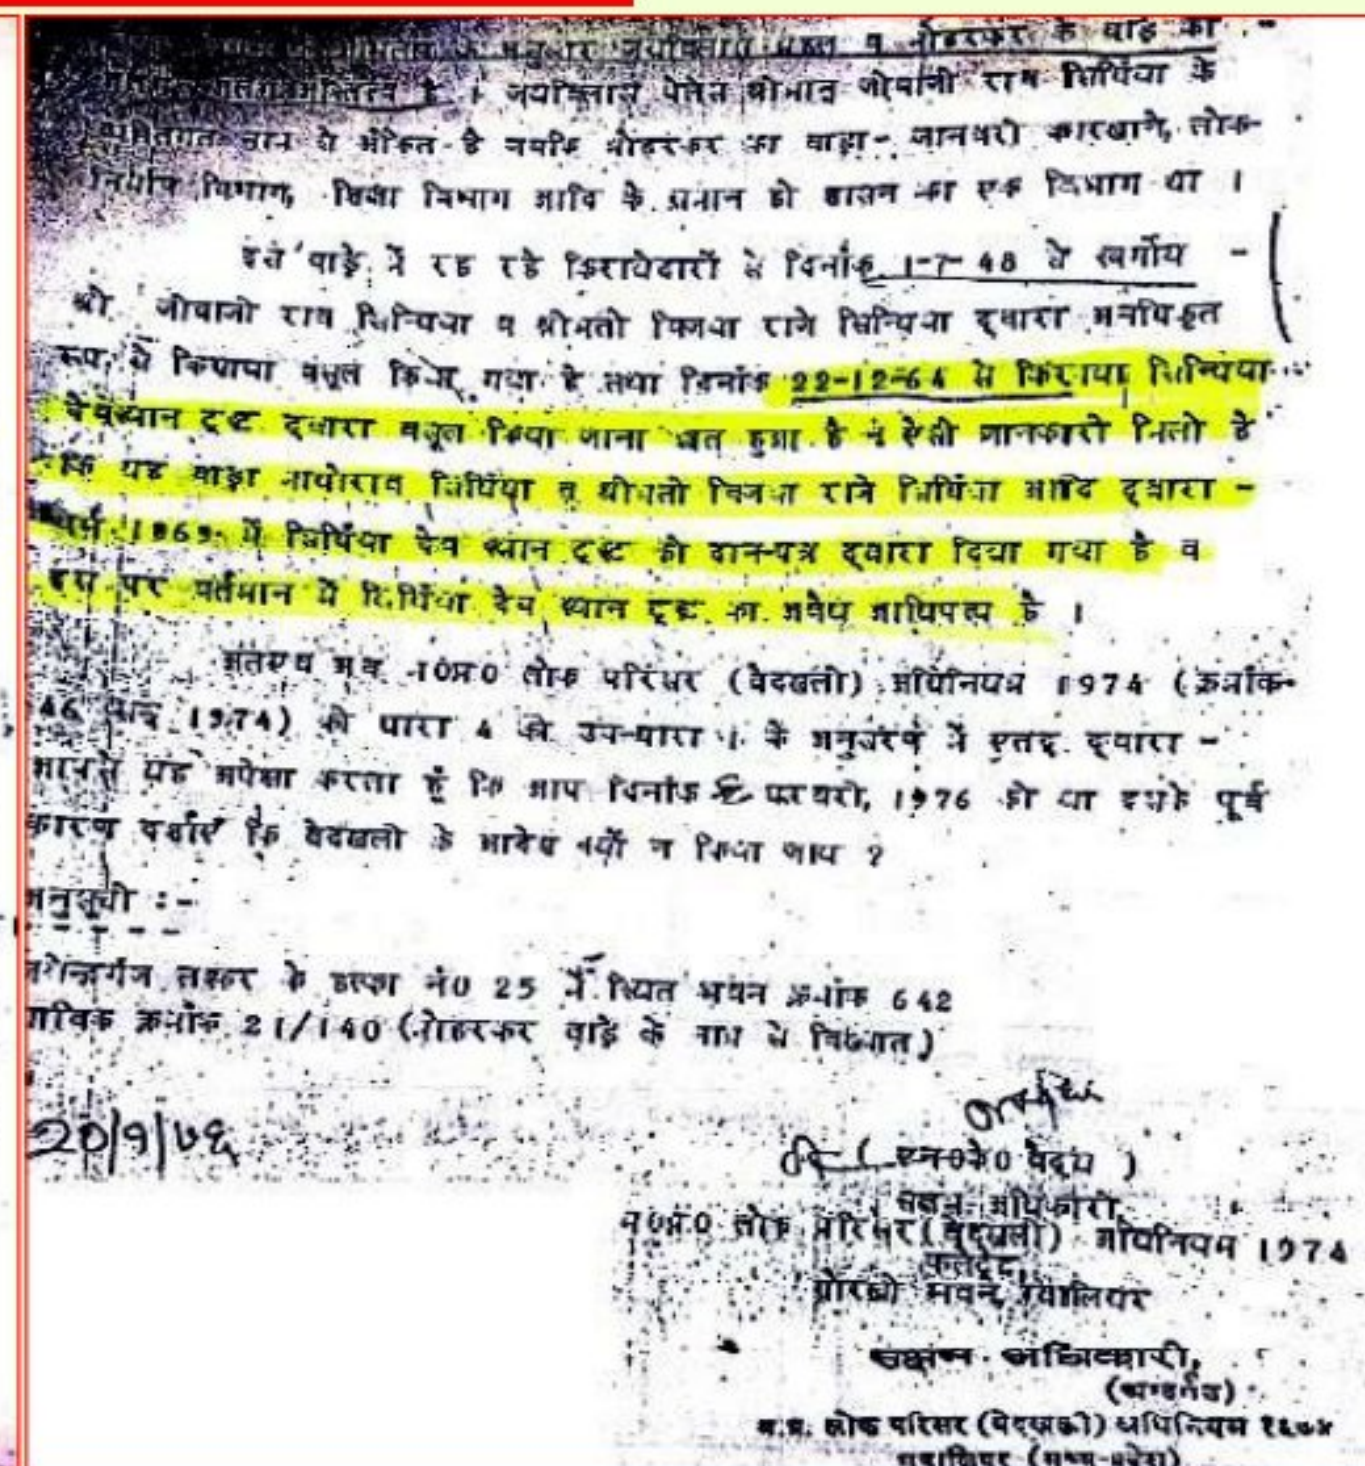 के अनुसार जयविलास महल व नोहरकर के वाड़े का -
है । जयविलास पेलेस श्रीमान जीवाजी राव सिंधिया के
नाम से अंकित है जबकि नोहरकर का वाड़ा - जानवरो कारखाने, लोक-
निर्माण विभाग, शिक्षा विभाग आदि के समान ही शासन का एक विभाग था ।
इस वाड़े में रह रहे किरायेदारों से दिनांक 1-7-48 से स्वर्गीय -
श्री जीवाजी राव सिन्धिया व श्रीमती विजया राजे सिन्धिया द्वारा अनधिकृत
रूप से किराया वसूल किया गया है तथा दिनांक 22-12-64 से किराया सिन्धिया
देवस्थान ट्रस्ट द्वारा वसूल किया जाना ज्ञात हुआ है ऐसी जानकारी मिली है
कि यह वाड़ा माधोराव सिंधिया व श्रीमती विजया राजे सिंधिया आदि द्वारा -
में सिंधिया देव स्थान ट्रस्ट को दान-पत्र द्वारा दिया गया है व
इस पर वर्तमान में सिंधिया देव स्थान ट्रस्ट का अवैध आधिपत्य है ।
अतएव अब म0प्र0 लोक परिसर (बेदखली) अधिनियम 1974 (क्रमांक-
46 सन् 1974) की धारा 4 की उप-धारा 1 के अनुसरण में एतद् द्वारा -
आपसे यह अपेक्षा करता हूँ कि आप दिनांक फरवरी, 1976 को या इसके पूर्व
कारण दर्शाएं कि बेदखली के आदेश क्यों न किया जाय ?
अनुसूची :-
लश्कर के हल्का नं0 25 में स्थित भवन क्रमांक 642
क्रमांक 21/140 (नोहरकर वाड़े के नाम से विख्यात)
20/१/७६
( एन0के0 वैद्य )
सक्षम अधिकारी,
म0प्र0 लोक परिसर (बेदखली) अधिनियम 1974
कलेक्ट्रेट,
गोरखी भवन, ग्वालियर
सक्षम अधिकारी,
म.प्र. लोक परिसर (बेदखली) अधिनियम १९७४
ग्वालियर (मध्य-प्रदेश)